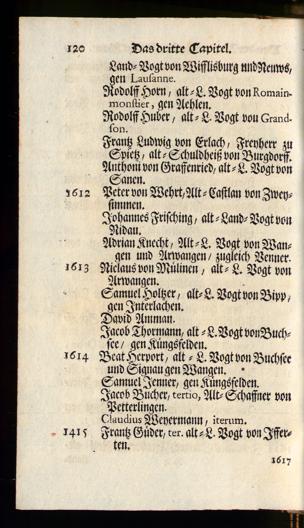 120 Das dritte Capitel.
Land-Vogt von Wifflisburg und Neuws,
gen Lausanne.
Rodolff Horn, alt-L. Vogt von Romain-
monstier, gen Aehlen.
Rodolff Huber, alt-L. Vogt von Grand-
son.
Frantz Ludwig von Erlach, Freyherr zu
Spietz, alt-Schuldheiß von Burgdorff.
Anthoni von Graffenried, alt-L. Vogt von
Sanen.
1612 Peter von Wehrt, Alt-Castlan von Zwey-
simmen.
Johannes Frisching, alt-Land-Vogt von
Nidau.
Adrian Knecht, Alt-L. Vogt von Wan-
gen und Arwangen, zugleich Venner.
1613 Niclaus von Mülinen, alt-L. Vogt von
Arwangen.
Samuel Holtzer, alt-L. Vogt von Bipp,
gen Interlachen.
David Amman.
Jacob Thormann, alt-L. Vogt von Buch-
see, gen Küngsfelden.
1614 Beat Herport, alt-L. Vogt von Buchsee
und Signau gen Wangen.
Samuel Jenner, gen Küngsfelden.
Jacob Bucher, tertio, Alt-Schaffner von
Petterlingen.
Claudius Weyermann, iterum.
1415 Frantz Güder, ter. alt-L. Vogt von Iffer-
ten.
1617